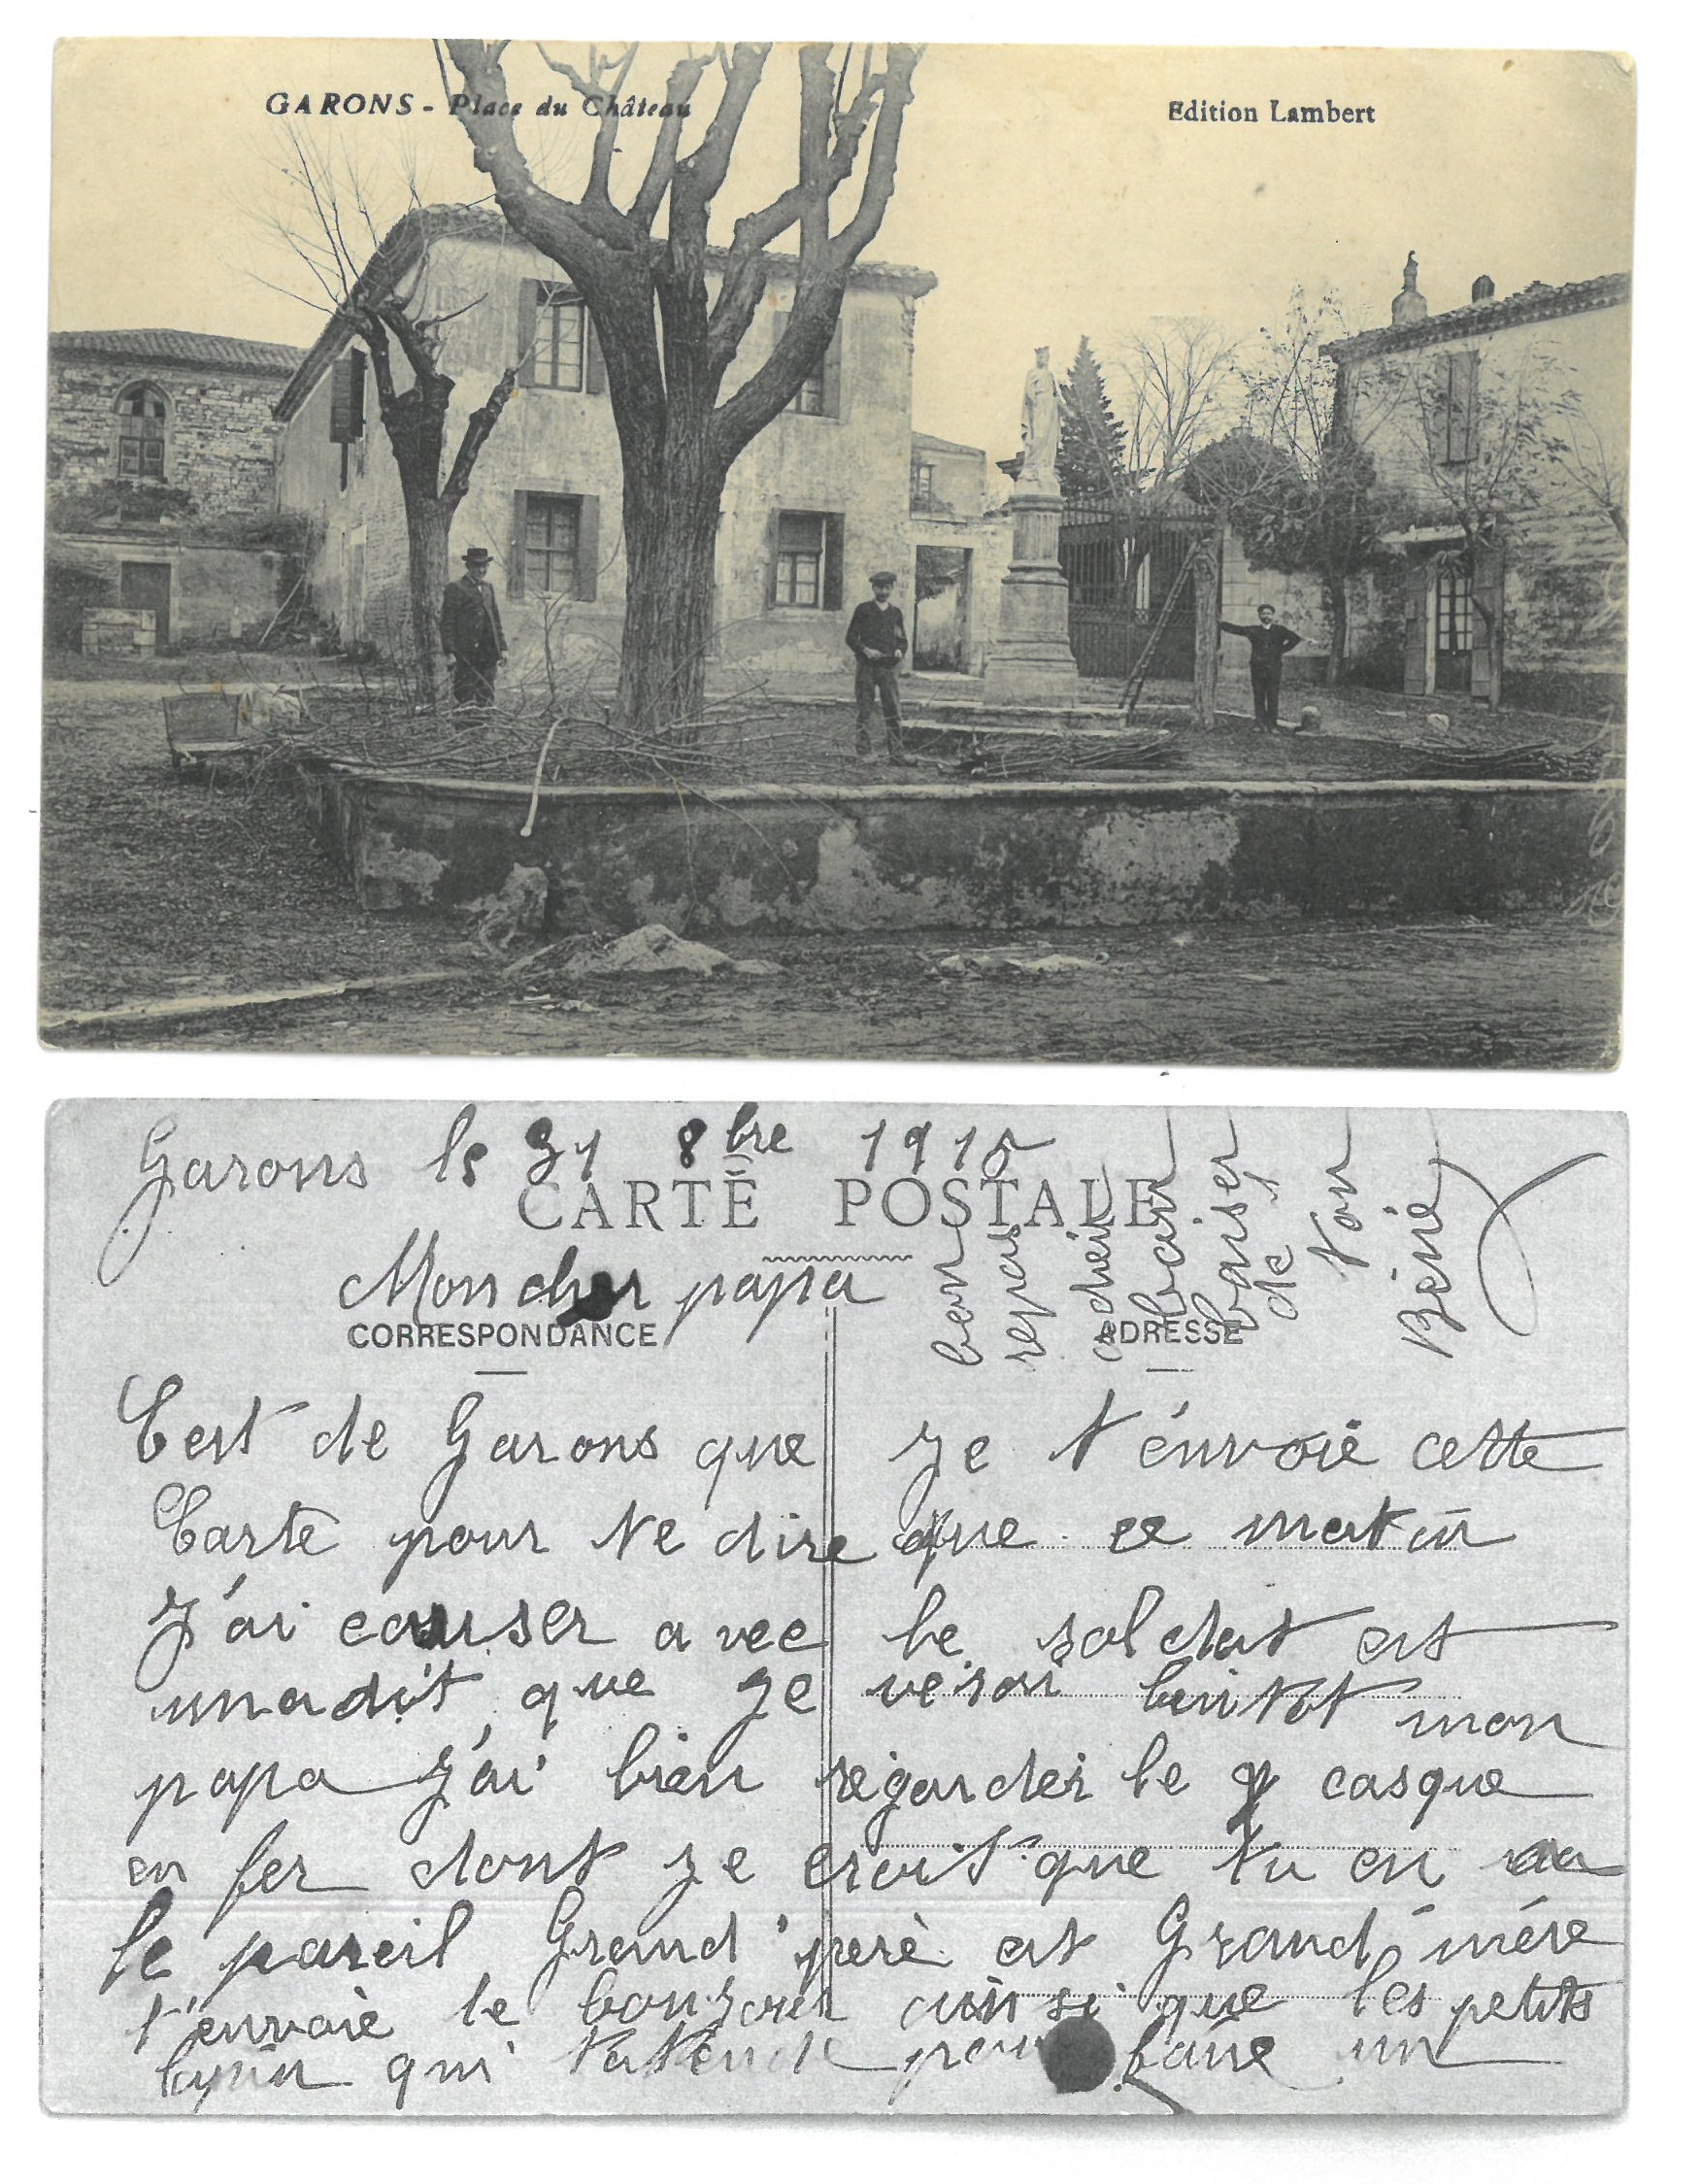 GARONS - Place du Château
Edition Lambert
Garons le 31 8bre 1915
CARTE POSTALE
Mon cher papa
CORRESPONDANCE
ADRESSE
C'est de Garons que je t'énvoie cette
Carte pour te dire que ce matin
J'ai causer avec le soldat est
m'a dit que je verai bintot mon
papa J'ai bien régarder le casque
en fer dont je croit que tu en a
le pareil Grand'perè est Grand'mére
t'envoie le bonjour ainsi que les petits
lapin qui t'atende pour faire un
bon
repas
cher
baiser
de
ton
Béné